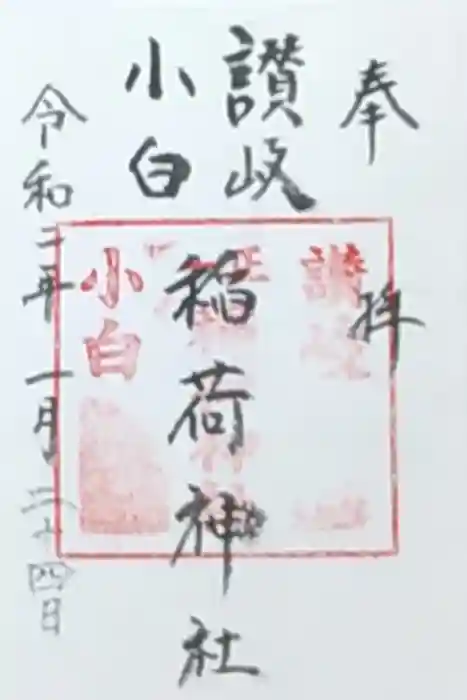 奉拝
讃岐
小白
稲荷神社
令和二年一月二十四日
讃岐
小白